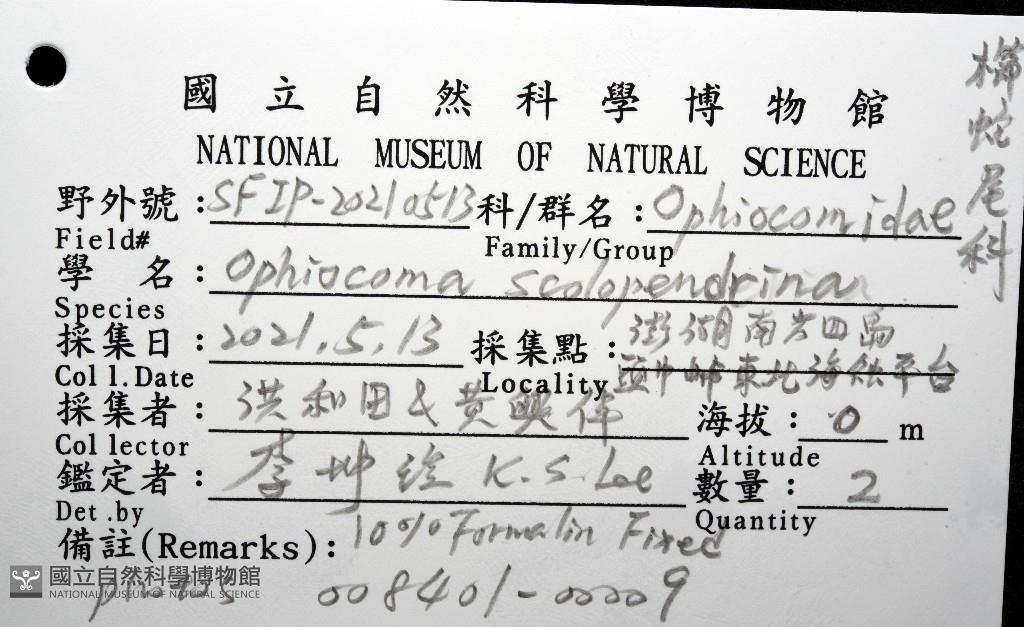 國立自然科學博物館
NATIONAL MUSEUM OF NATURAL SCIENCE
櫛蛇尾科
野外號:SFIP-20210513 科/群名:Ophiocomidae
Field# Family/Group
學名:Ophiocoma scolopendrina
Species
採集日:2021.5.13 採集點:澎湖南方四島
東北海蝕平台
Coll.Date Locality
採集者:洪和田 & 黃興倬 海拔:0 m
Collector Altitude
鑑定者:李坤瑄 K.S.Lee 數量:2
Det.by Quantity
備註(Remarks):10% Formalin Fixed
photos 008401-00009
國立自然科學博物館
NATIONAL MUSEUM OF NATURAL SCIENCE